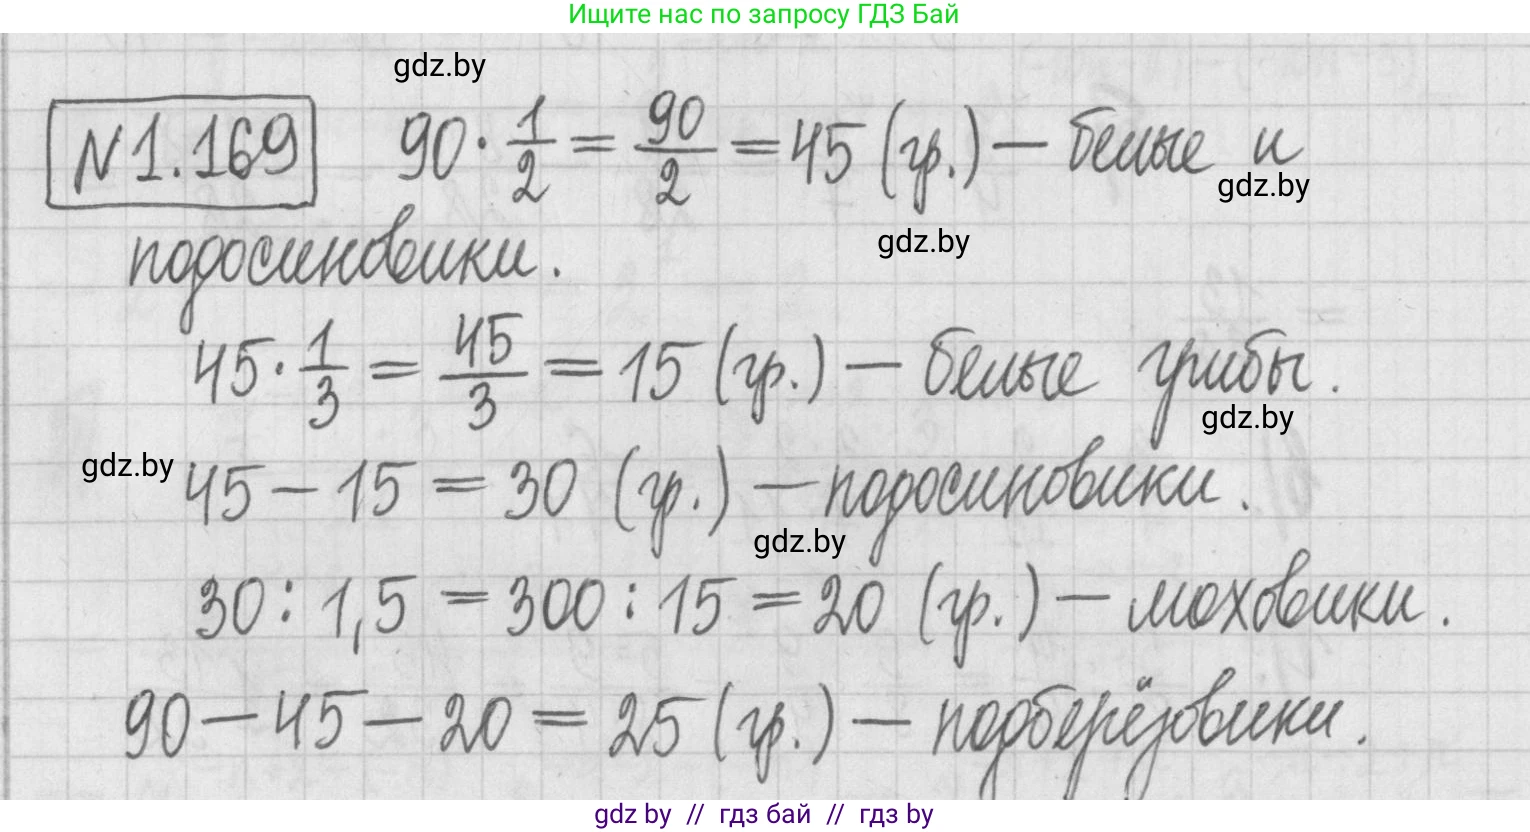 Ищите нас по запросу ГДЗ Бай
gdz.by
№1.169 90 · 1/2 = 90/2 = 45 (гр.) — белые и
gdz.by
подосиновики.
gdz.by
45 · 1/3 = 45/3 = 15 (гр.) — белые грибы.
gdz.by
gdz.by
45 − 15 = 30 (гр.) — подосиновики.
gdz.by
30 : 1,5 = 300 : 15 = 20 (гр.) — моховики.
90 − 45 − 20 = 25 (гр.) — подберёзовики.
gdz by // гдз бай // гдз by